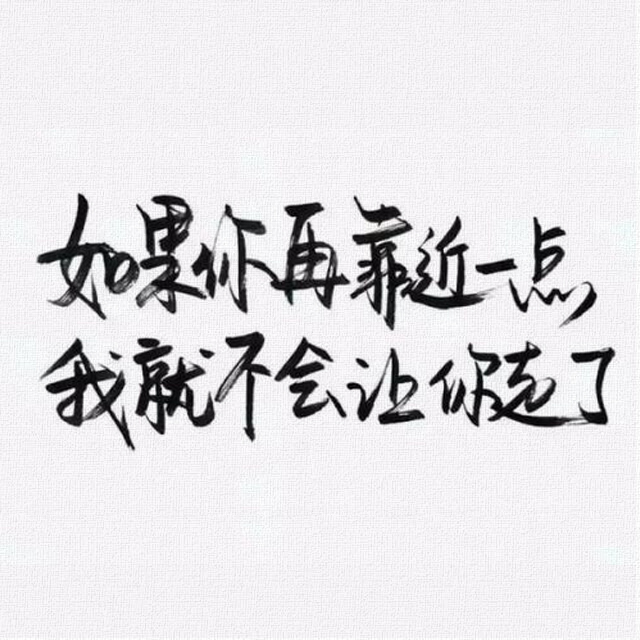 如果你再靠近一点
我就不会让你走了